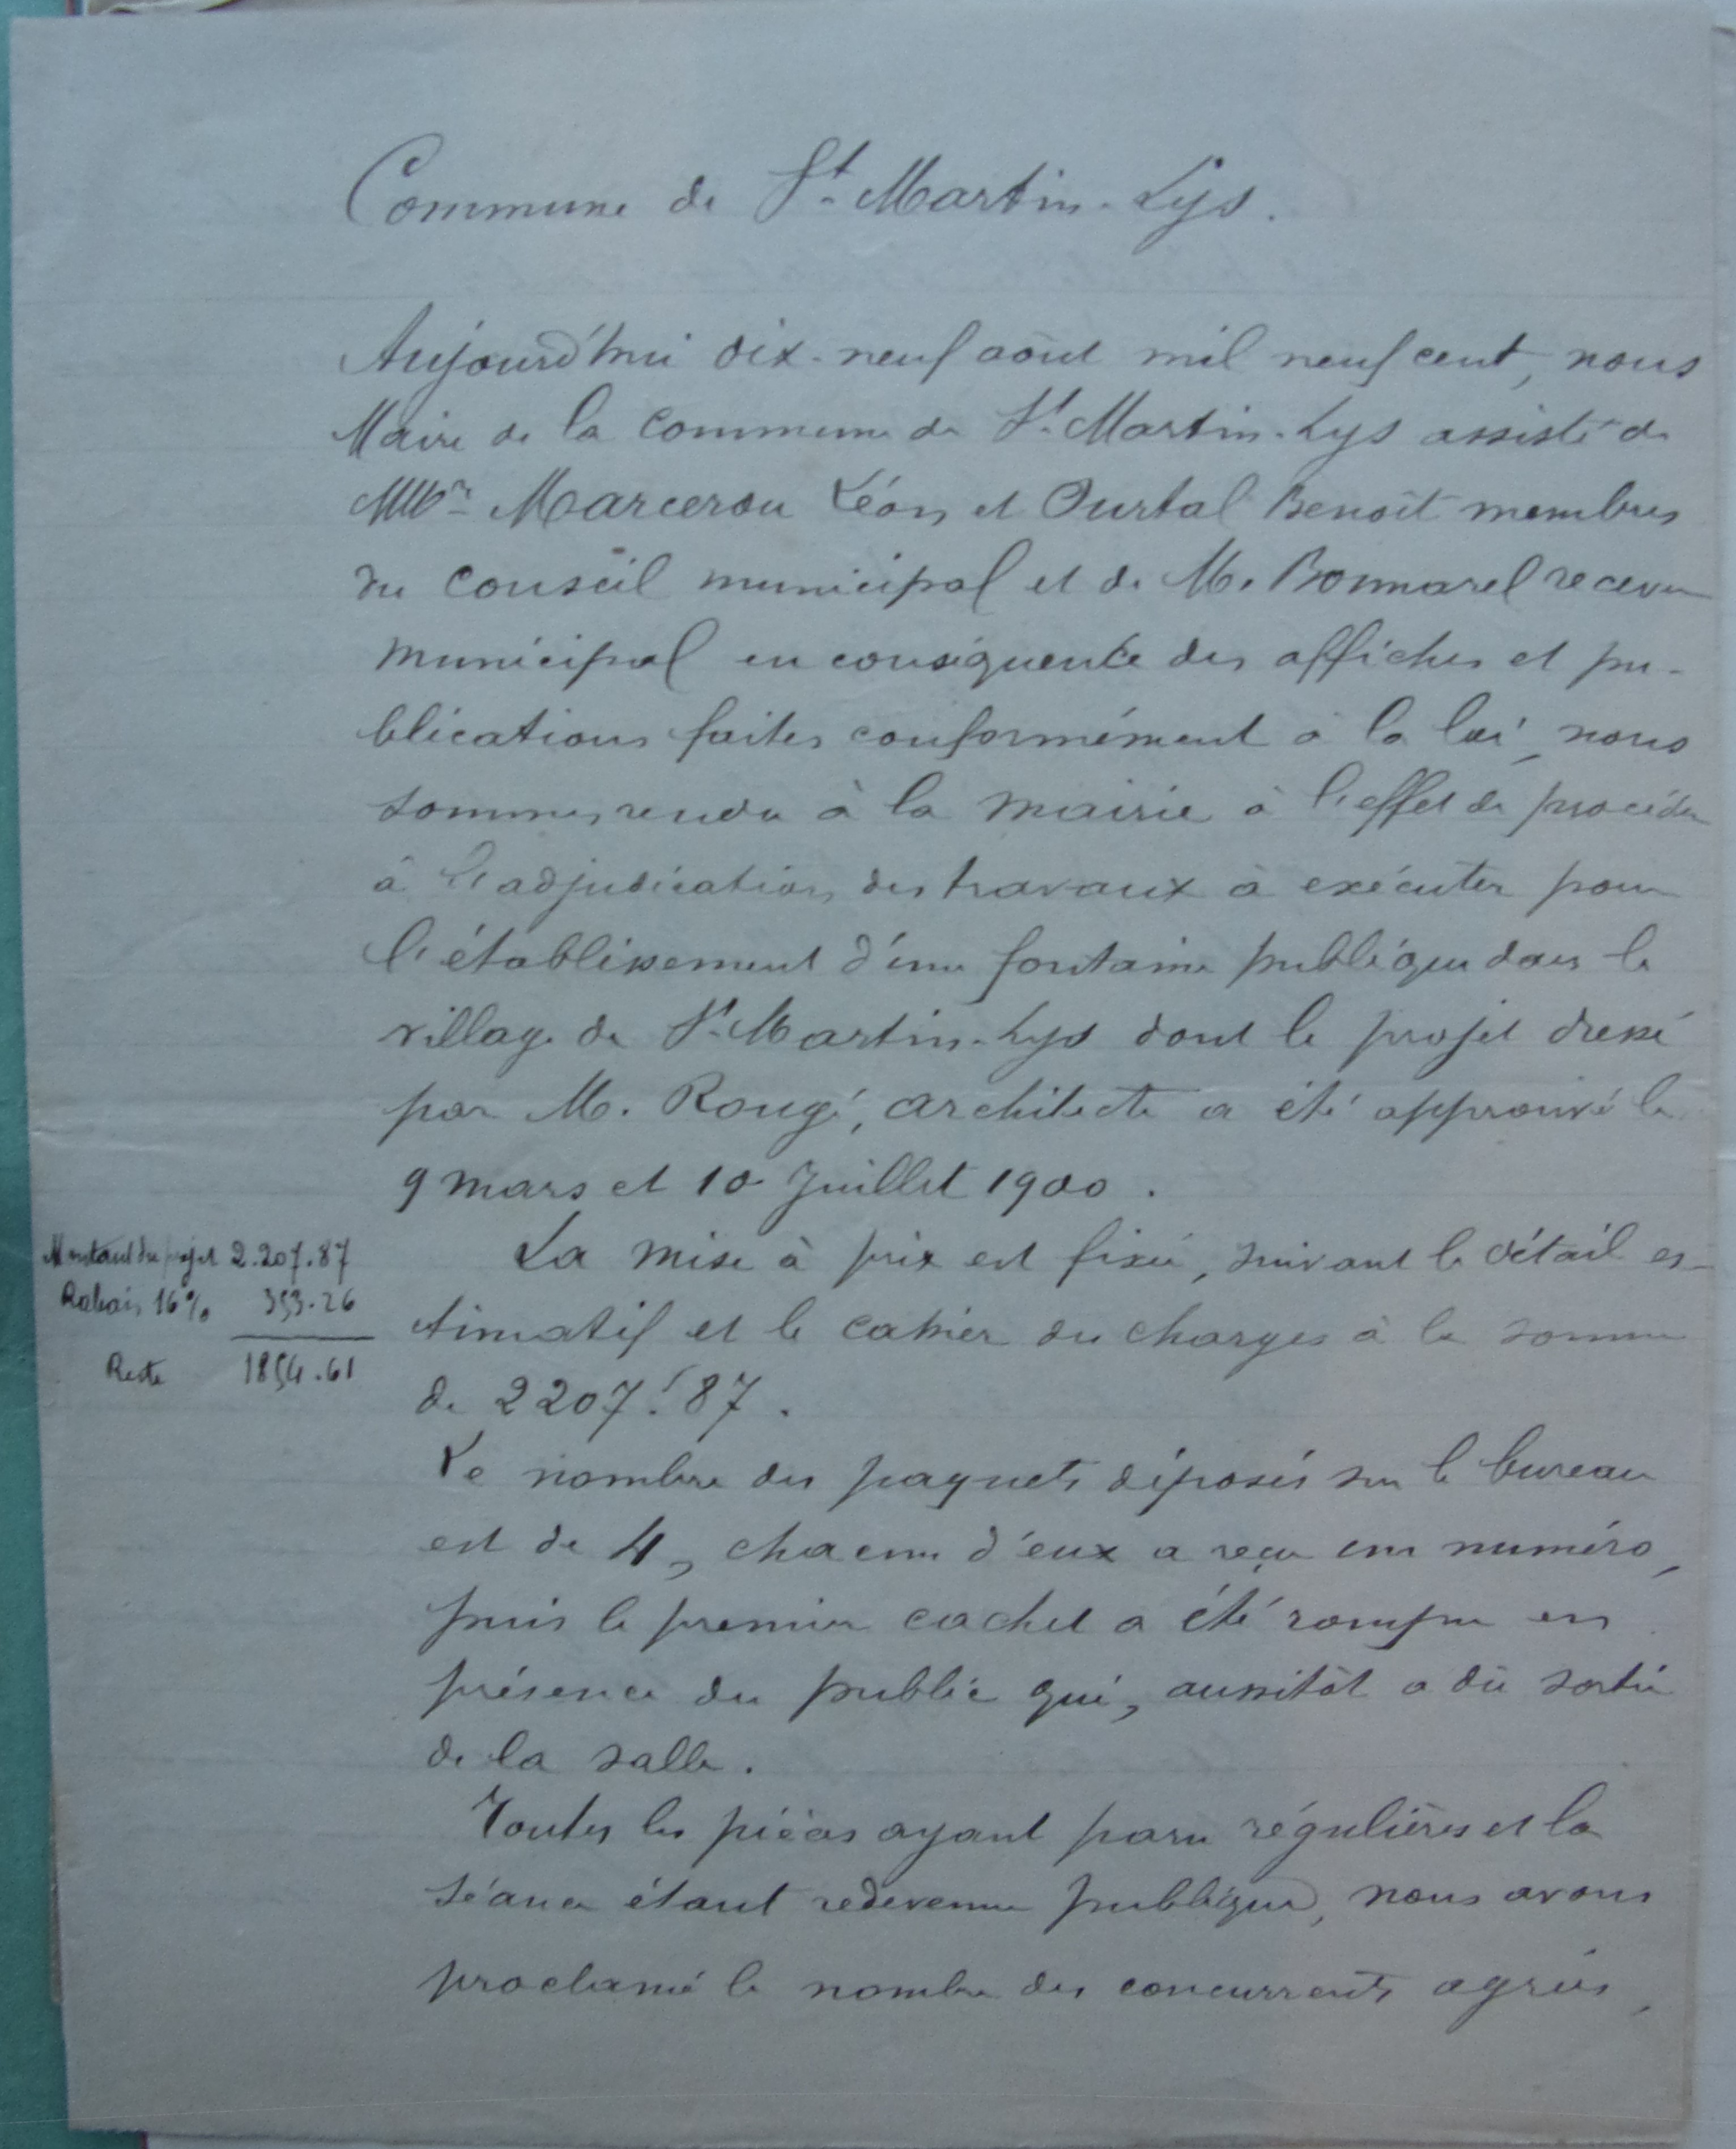 Commune de St. Martin-Lys.
Aujourd'hui dix-neuf août mil neuf cent, nous
Maire de la commune de St. Martin-Lys assisté de
MMrs Marcerou Léon et Ourtal Benoît membres
du Conseil municipal et de M. Bonnarel receveur
municipal en conséquence des affiches et pu-
blications faites conformément à la loi, nous
sommes rendu à la mairie à l'effet de procéder
à l'adjudication des travaux à exécuter pour
l'établissement d'une fontaine publique dans le
village de St. Martin-Lys dont le projet dressé
par M. Rougé, architecte a été approuvé le
9 mars et 10 Juillet 1900.
Montant du projet 2.207.87
Rabais 16% 353.26
Reste 1854.61
La mise à prix est fixée, suivant le détail es-
timatif et le cahier des charges à la somme
de 2207f.87.
Le nombre des paquets déposés sur le bureau
est de 4, chacun d'eux a reçu un numéro,
puis le premier cachet a été rompu en
présence du public qui, aussitôt a dû sortir
de la salle.
Toutes les pièces ayant paru régulières et la
séance étant redevenue publique, nous avons
proclamé le nombre des concurrents agréés,